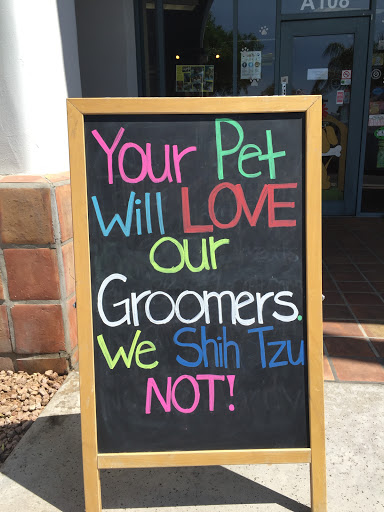 A108
Your Pet
Will LOVE
our
Groomers.
We Shih Tzu
NOT!